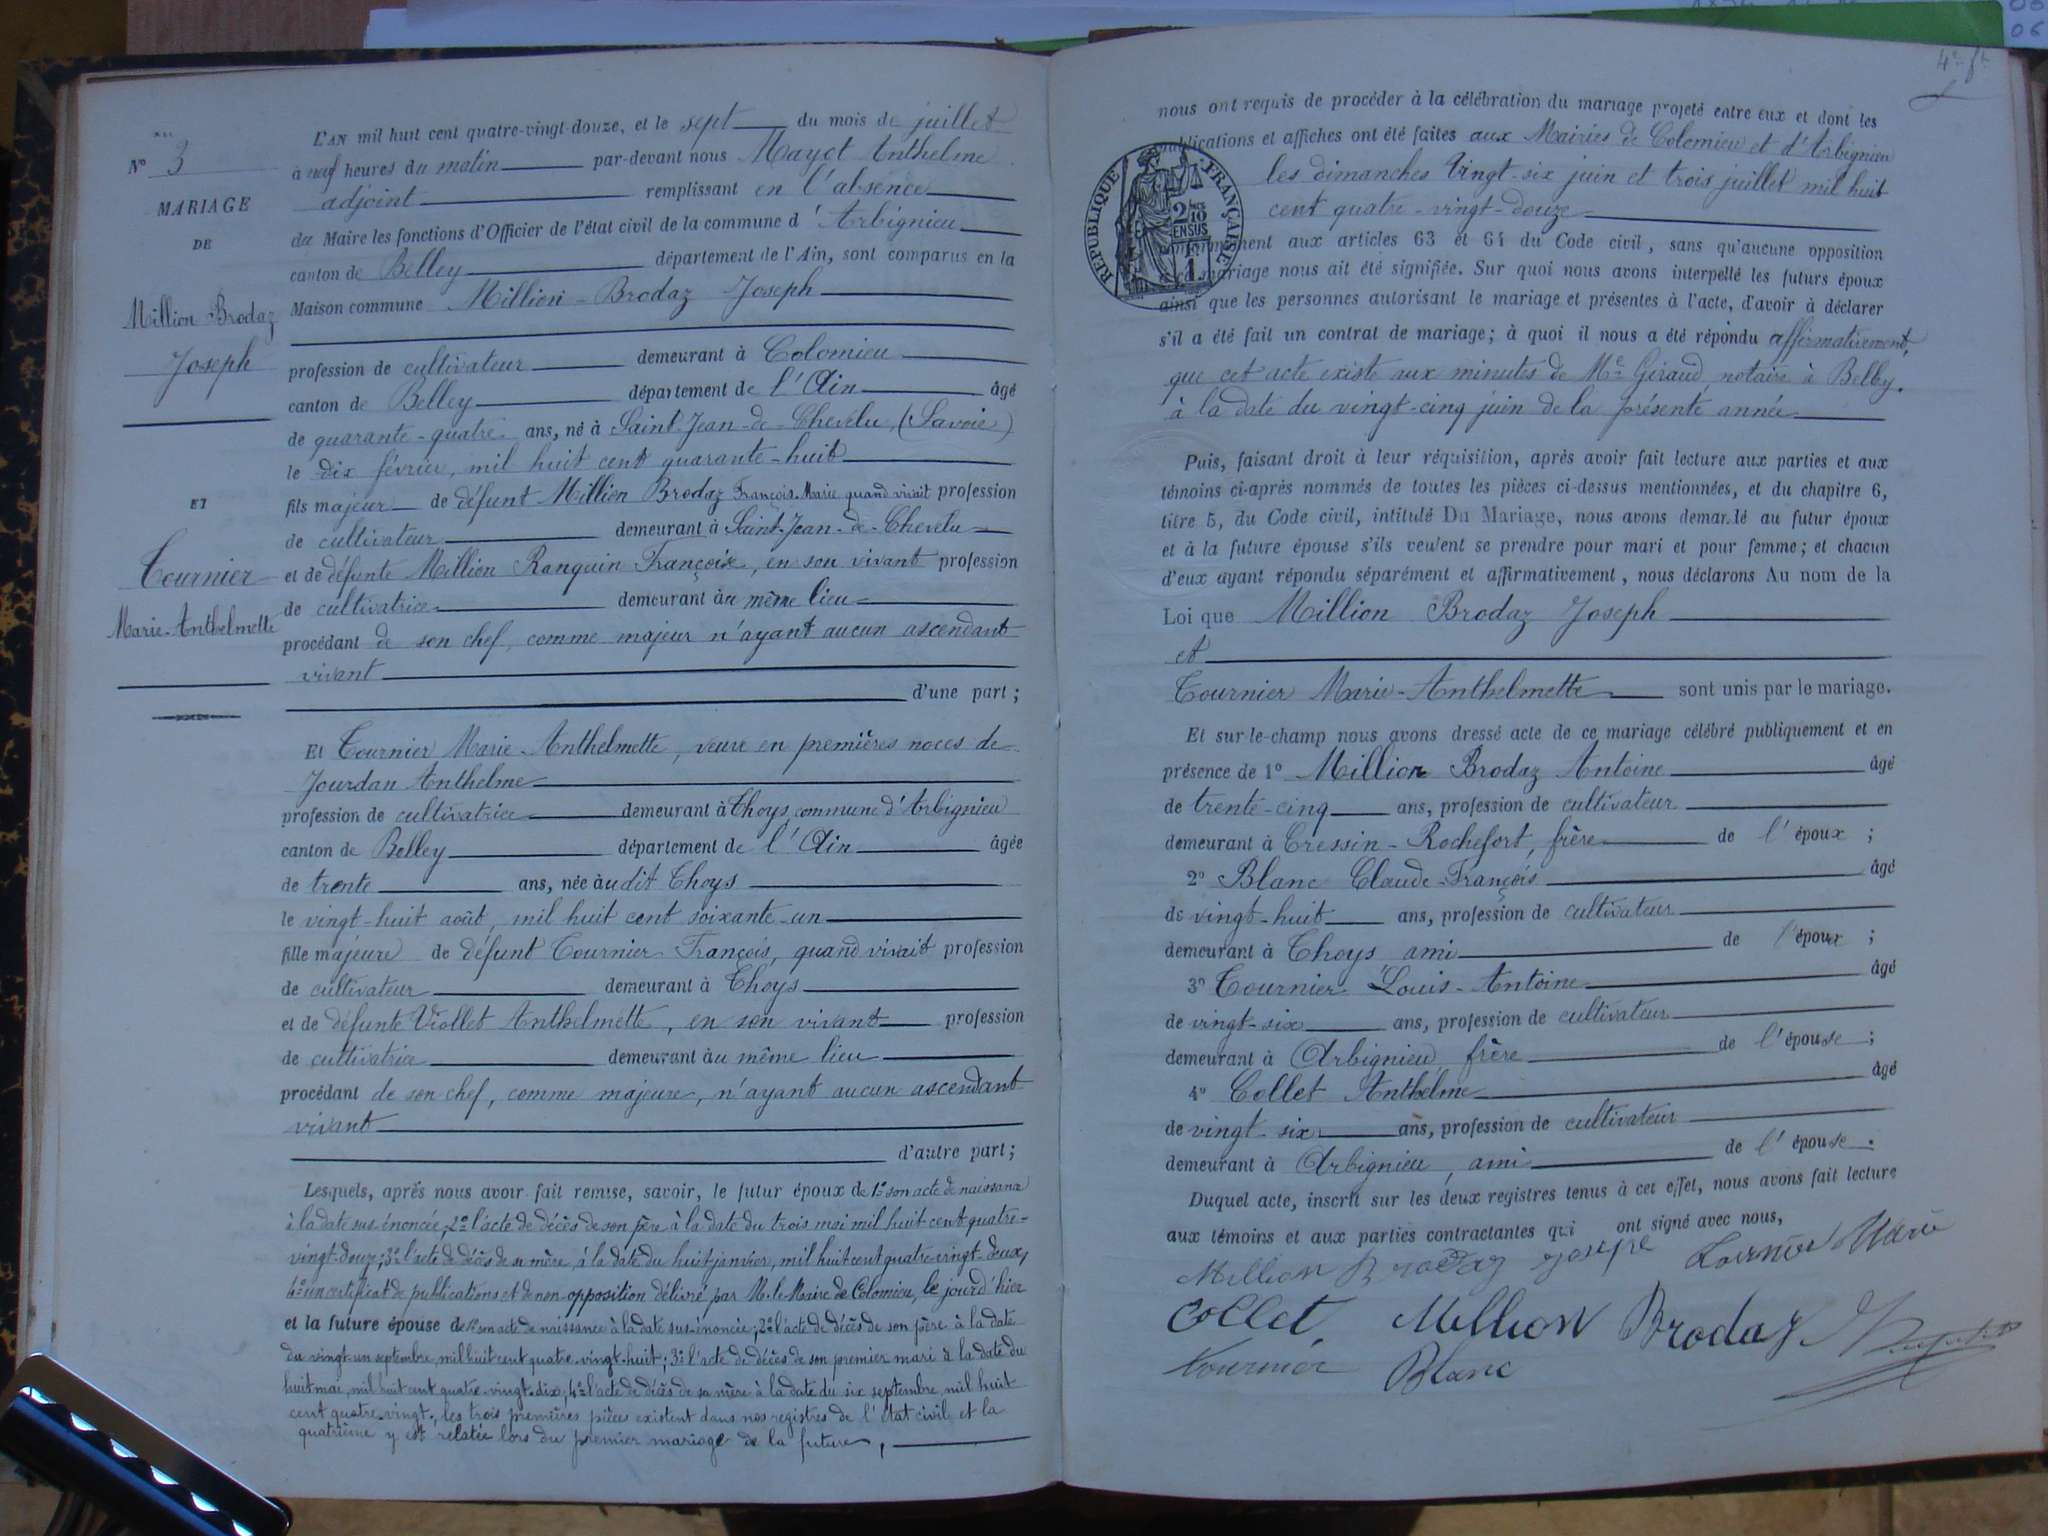 N° 3
MARIAGE
DE
Million Brodaz
Joseph
ET
Tournier
Marie-Anthelmette
L'AN mil huit cent quatre-vingt-douze, et le sept du mois de juillet
à neuf heures du matin par-devant nous Mayot Anthelme
adjoint remplissant en l'absence
du Maire les fonctions d'Officier de l'état civil de la commune d'Arbignieu
canton de Belley département de l'Ain, sont comparus en la
Maison commune Million-Brodaz Joseph
profession de cultivateur demeurant à Colomieu
canton de Belley département de l'Ain âgé
de quarante-quatre ans, né à Saint-Jean-de-Chevelu, (Savoie)
le dix février, mil huit cent quarante-huit
fils majeur de défunt Million Brodaz François-Marie quand vivait profession
de cultivateur demeurant à Saint-Jean-de-Chevelu
et de défunte Million Ranquin Françoise, en son vivant profession
de cultivatrice demeurant au même lieu
procédant de son chef, comme majeur n'ayant aucun ascendant
vivant
d'une part ;
Et Tournier Marie-Anthelmette, veuve en premières noces de
Jourdan Anthelme
profession de cultivatrice demeurant à Thoys, commune d'Arbignieu
canton de Belley département de l'Ain âgée
de trente ans, née àudit Thoys
le vingt-huit août, mil huit cent soixante-un
fille majeure de défunt Tournier François, quand vivait profession
de cultivateur demeurant à Thoys
et de défunte Viollet Anthelmette, en son vivant profession
de cultivatrice demeurant àu même lieu
procédant de son chef, comme majeure, n'ayant aucun ascendant
vivant
d'autre part ;
Lesquels, après nous avoir fait remise, savoir, le futur époux de 1° son acte de naissance
à la date sus-énoncée, 2° l'acte de décès de son père à la date du trois mai mil huit cent quatre-
vingt-douze; 3° l'acte de décès de sa mère, à la date du huit janvier, mil huit cent quatre-vingt-deux,
4° un certificat de publications et de non opposition délivré par M. le Maire de Colomieu, le jour d'hier
et la future épouse de 1° son acte de naissance à la date sus-énoncée; 2° l'acte de décès de son père à la date
du vingt-un septembre, mil huit cent quatre-vingt-huit; 3° l'acte de décès de son premier mari à la date du
huit mai, mil huit cent quatre-vingt-dix, 4° l'acte de décès de sa mère à la date du six septembre, mil huit
cent quatre-vingt, les trois premières pièces existent dans nos registres de l'état civil et la
quatrième y est relatée lors du premier mariage de la future,
nous ont requis de procéder à la célébration du mariage projeté entre eux et dont les
publications et affiches ont été faites aux Mairies de Colomieu et d'Arbignieu
les dimanches vingt-six juin et trois juillet mil huit
cent quatre-vingt-douze
RÉPUBLIQUE FRANÇAISE
2/10
EN SUS
1
aux articles 63 et 64 du Code civil, sans qu'aucune opposition
mariage nous ait été signifiée. Sur quoi nous avons interpellé les futurs époux
ainsi que les personnes autorisant le mariage et présentes à l'acte, d'avoir à déclarer
s'il a été fait un contrat de mariage ; à quoi il nous a été répondu affirmativement,
que cet acte existe aux minutes de Me Giraud notaire à Belley.
à la date du vingt-cinq juin de la présente année
Puis, faisant droit à leur réquisition, après avoir fait lecture aux parties et aux
témoins ci-après nommés de toutes les pièces ci-dessus mentionnées, et du chapitre 6,
titre 5, du Code civil, intitulé Du Mariage, nous avons demandé au futur époux
et à la future épouse s'ils veulent se prendre pour mari et pour femme ; et chacun
d'eux ayant répondu séparément et affirmativement, nous déclarons Au nom de la
Loi que Million Brodaz Joseph
et
Tournier Marie-Anthelmette sont unis par le mariage.
Et sur-le-champ nous avons dressé acte de ce mariage célébré publiquement et en
présence de 1° Million Brodaz Antoine âgé
de trente-cinq ans, profession de cultivateur
demeurant à Cressin-Rochefort, frère de l'époux ;
2° Blanc Claude-François âgé
de vingt-huit ans, profession de cultivateur
demeurant à Thoys ami de l'époux ;
3° Tournier Louis-Antoine âgé
de vingt-six ans, profession de cultivateur
demeurant à Arbignieu, frère de l'épouse ;
4° Collet Anthelme âgé
de vingt-six ans, profession de cultivateur
demeurant à Arbignieu, ami de l'épouse.
Duquel acte, inscrit sur les deux registres tenus à cet effet, nous avons fait lecture
aux témoins et aux parties contractantes qui ont signé avec nous,
Million Brodaz Joseph Tournier Marie
Collet Million Brodaz
Tournier Blanc